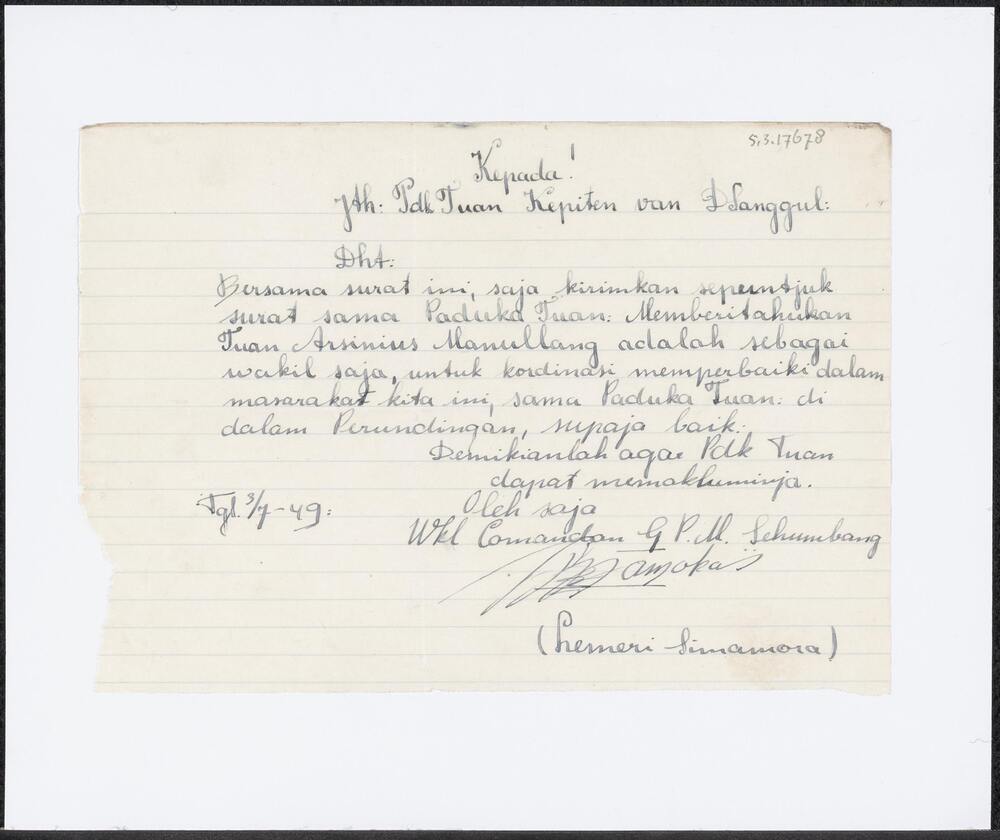 5.3.17678
Kepada!
Jth: Pdk Tuan Kepiten van D Sanggul:
Dht:
Bersama surat ini, saja kirimkan sepuntjuk
surat sama Paduka Tuan: Memberitahukan
Tuan Arsinius Manullang adalah sebagai
wakil saja, untuk kordinasi memperbaiki dalam
masarakat kita ini, sama Paduka Tuan: di
dalam Perundingan, supaja baik:
Demikianlah agar Pdk Tuan
dapat memakluminja.
Tgl. 3/7-49:
Oleh saja
Wkl Comandan G P. M. Sehumbang
(Hemeri Simamora)